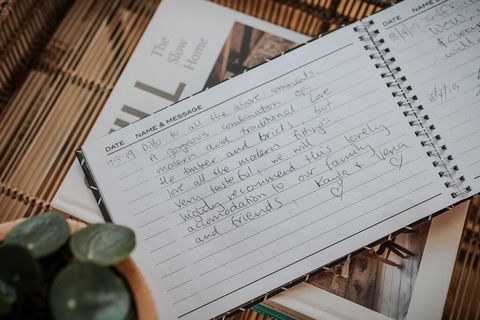 The
Slow
Home
DATE NAME & MESSAGE
17-3-19 Ditto to all the above comments.
A gorgeous combination of
modern and traditional. Love
the timber and bricks, but
love all the modern fittings.
Very tasteful, we will
highly recommend this lovely
accomodation to our family
and friends,
Kayla & Ilena
DATE NAME & MESSAGE